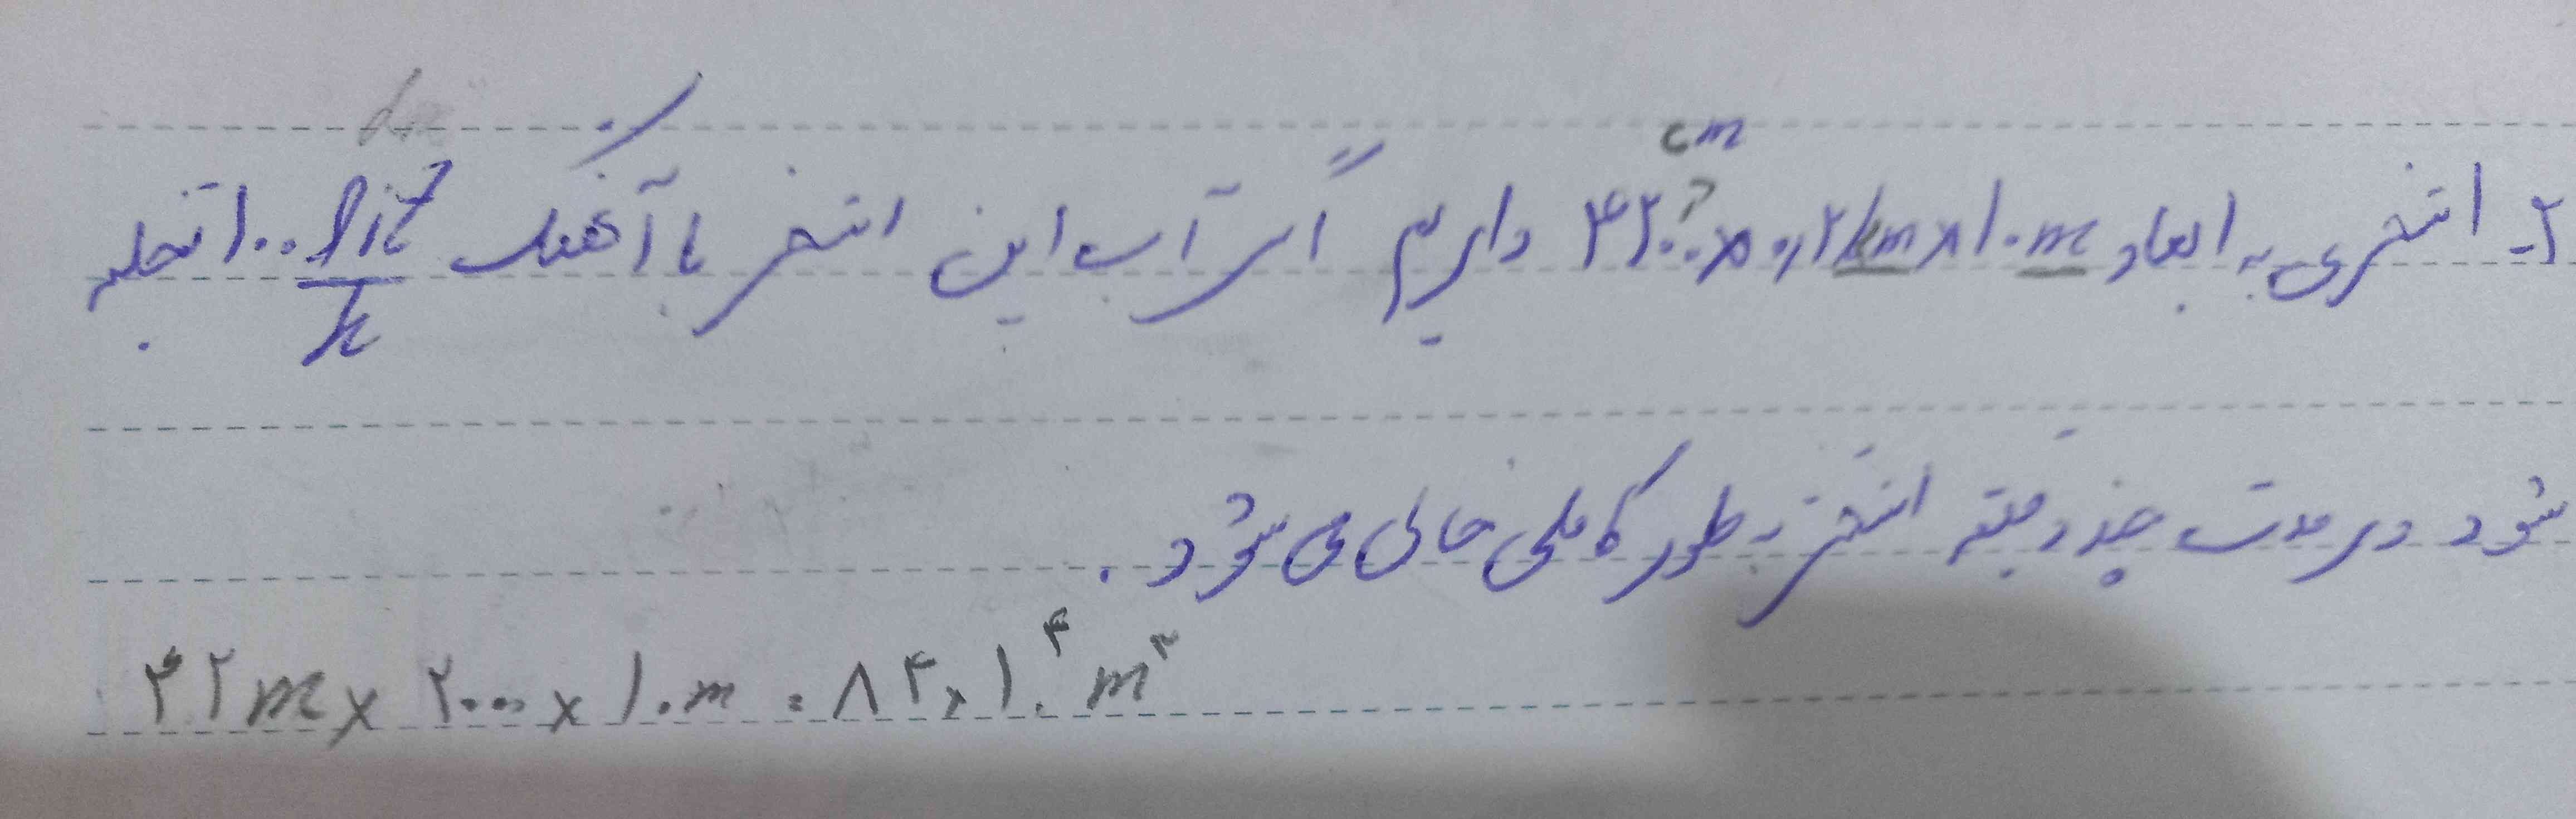 ۲- استخری به ابعاد ۴۲۰۰cm×۰٫۲km×۱۰m داریم اگر آب این استخر با آهنگ ۱۰۰ lit/h تخلیه
شود در مدت چند دقیقه استخر به طور کاملی خالی می شود .
۴۲m × ۲۰۰۰ × ۱۰m = ۸۴×۱۰^۴ m^۳